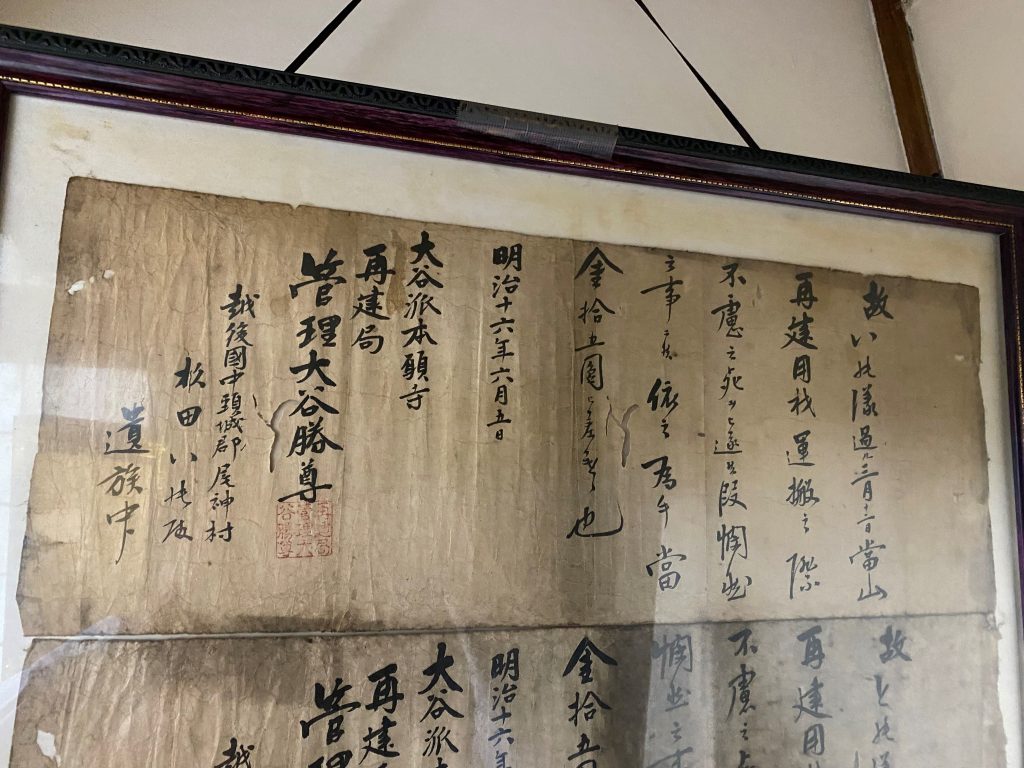 故い様過ル三月十二日當山
再建用材運搬之際
不慮之死ヲ遂段憫然
之事ニ候依之為當
金拾五圓也
明治十六年六月五日
大谷派本願寺
再建局
管理大谷勝尊
再建局
管理大
谷勝尊
越後國中頸城郡尾神村
松田い殿
遺族中
故と
再建用
不慮之
憫然之事
金拾五
明治十六年
大谷派本
再建
管理
越